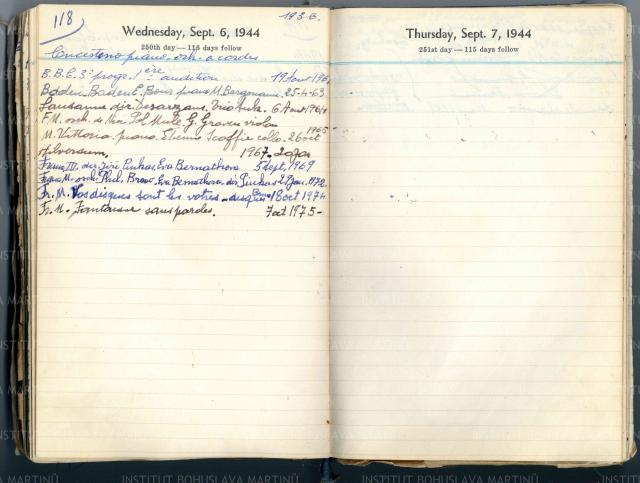 118
1936.
Wednesday, Sept. 6, 1944
250th day — 116 days follow
Concertino piano, orch. a cordes
B.B.C. 3e progr. 1ère audition 19 Aout 196
Baden-Baden E. Bour piano M. Bergmann. 25-4-63
Lausanne dir. Desarzens. Trio 6 Aout 1964
F.M. orch. de Nice Pol Mule G. Graven violon
M. Vittoria piano. Etienne Scoffie cello. 26 oct 1965
Hilversum. 1967. 20 Jan
France III. dir Jiří Pinkas, Eva Bernathova 5 Sept, 1969
Franc. M. orch. Phil. Brno Eva Bernathova dir Pinkas 27 Jan. 1972
Fr. M. Vos disques sont les vôtres - disque Brno 18 oct 1974
Fr. M. Fantaisie sans paroles. 7 oct 1975 -
Thursday, Sept. 7, 1944
251st day — 115 days follow
INSTITUT BOHUSLAVA MARTINŮ